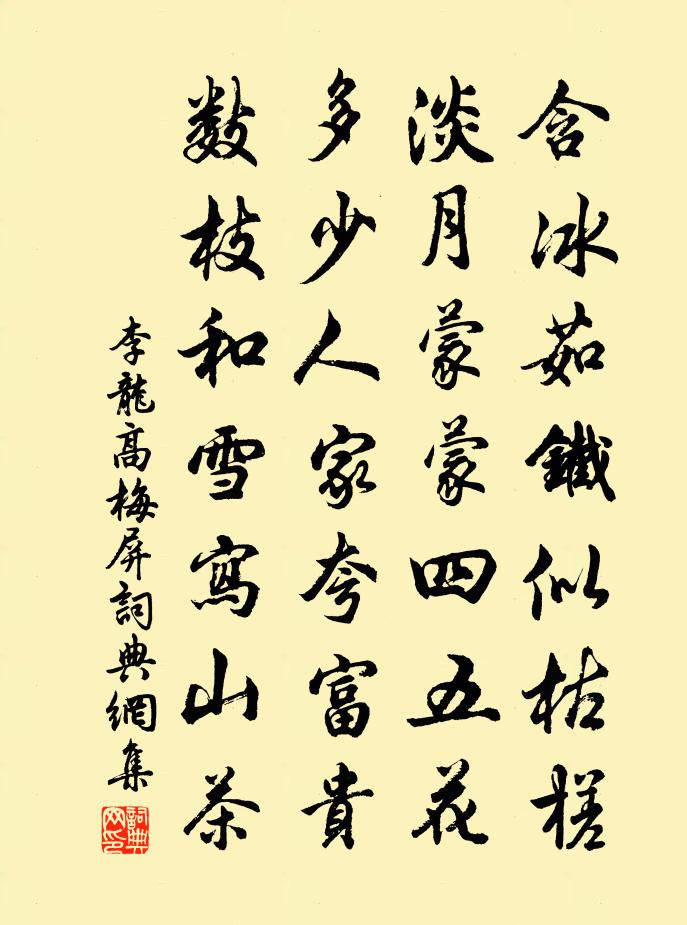 含冰茹鐵似枯槎
淡月蒙蒙四五花
多少人家夸富貴
數枝和雪寫山茶
李龍高梅屏詞典網集
詞典
网印